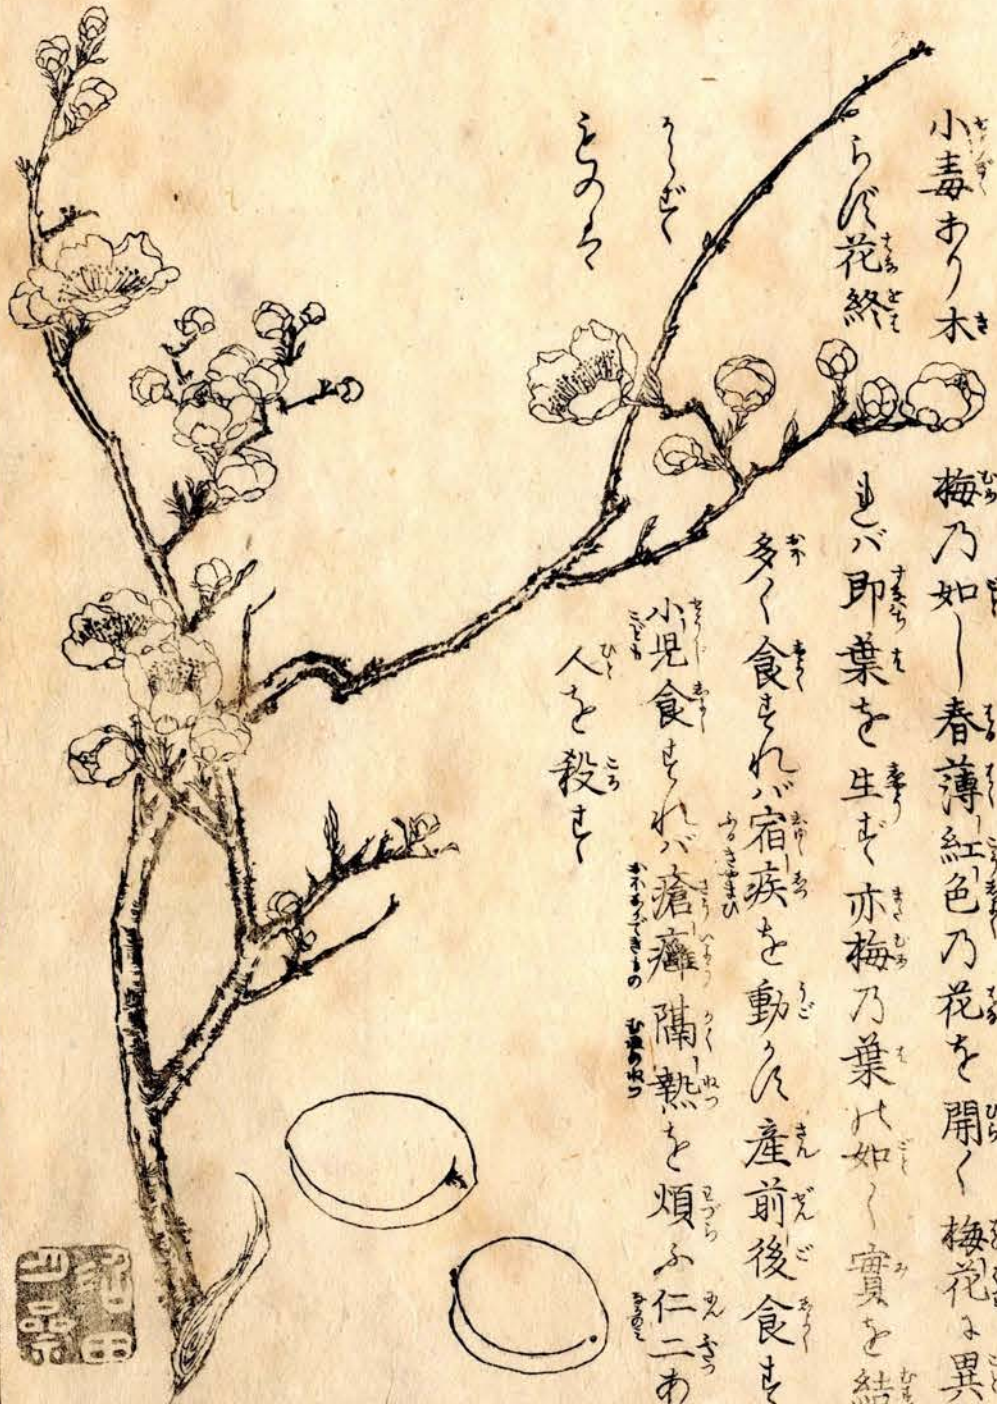 小毒あり木
梅乃如し春薄紅色乃花を開く梅花に異
らず花終
れバ即葉を生ず亦梅乃葉の如く實を結
多く食すれバ宿疾を動かす産前後食す
べからず
小児食すれバ瘡癰隔熱を煩ふ仁二あ
ものは
人を殺す